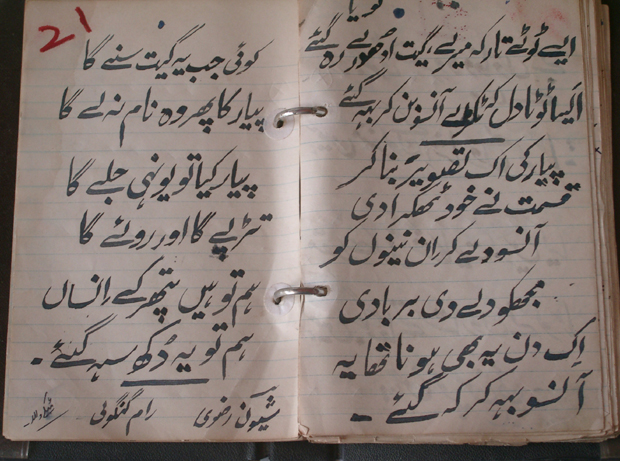 ایسے ٹوٹے تار کہ میرے گیت ادھورے رہ گئے
ایسا ٹوٹا دل ٹکڑے آنسو بن کر بہہ گئے
پیار کی اک تصویر بنا کر
قسمت نے خود ٹھکرا دی
آنسو دے کر ان نینوں کو
مجھکو دے دی بربادی
اِک دن یہ بھی ہونا تھا یہ
آنسو بہہ کر کہہ گئے ۔
21
کوئی جب یہ گیت سنے گا
پیار کا پھر وہ نام نہ لے گا
پیار کیا تو یونہی جلے گا
تڑپے گا اور روئے گا
ہم تو ہیں پتھر کے اِنساں
ہم تو یہ دُکھ سہہ گئے ۔
شیون رضوی رام گنگولی